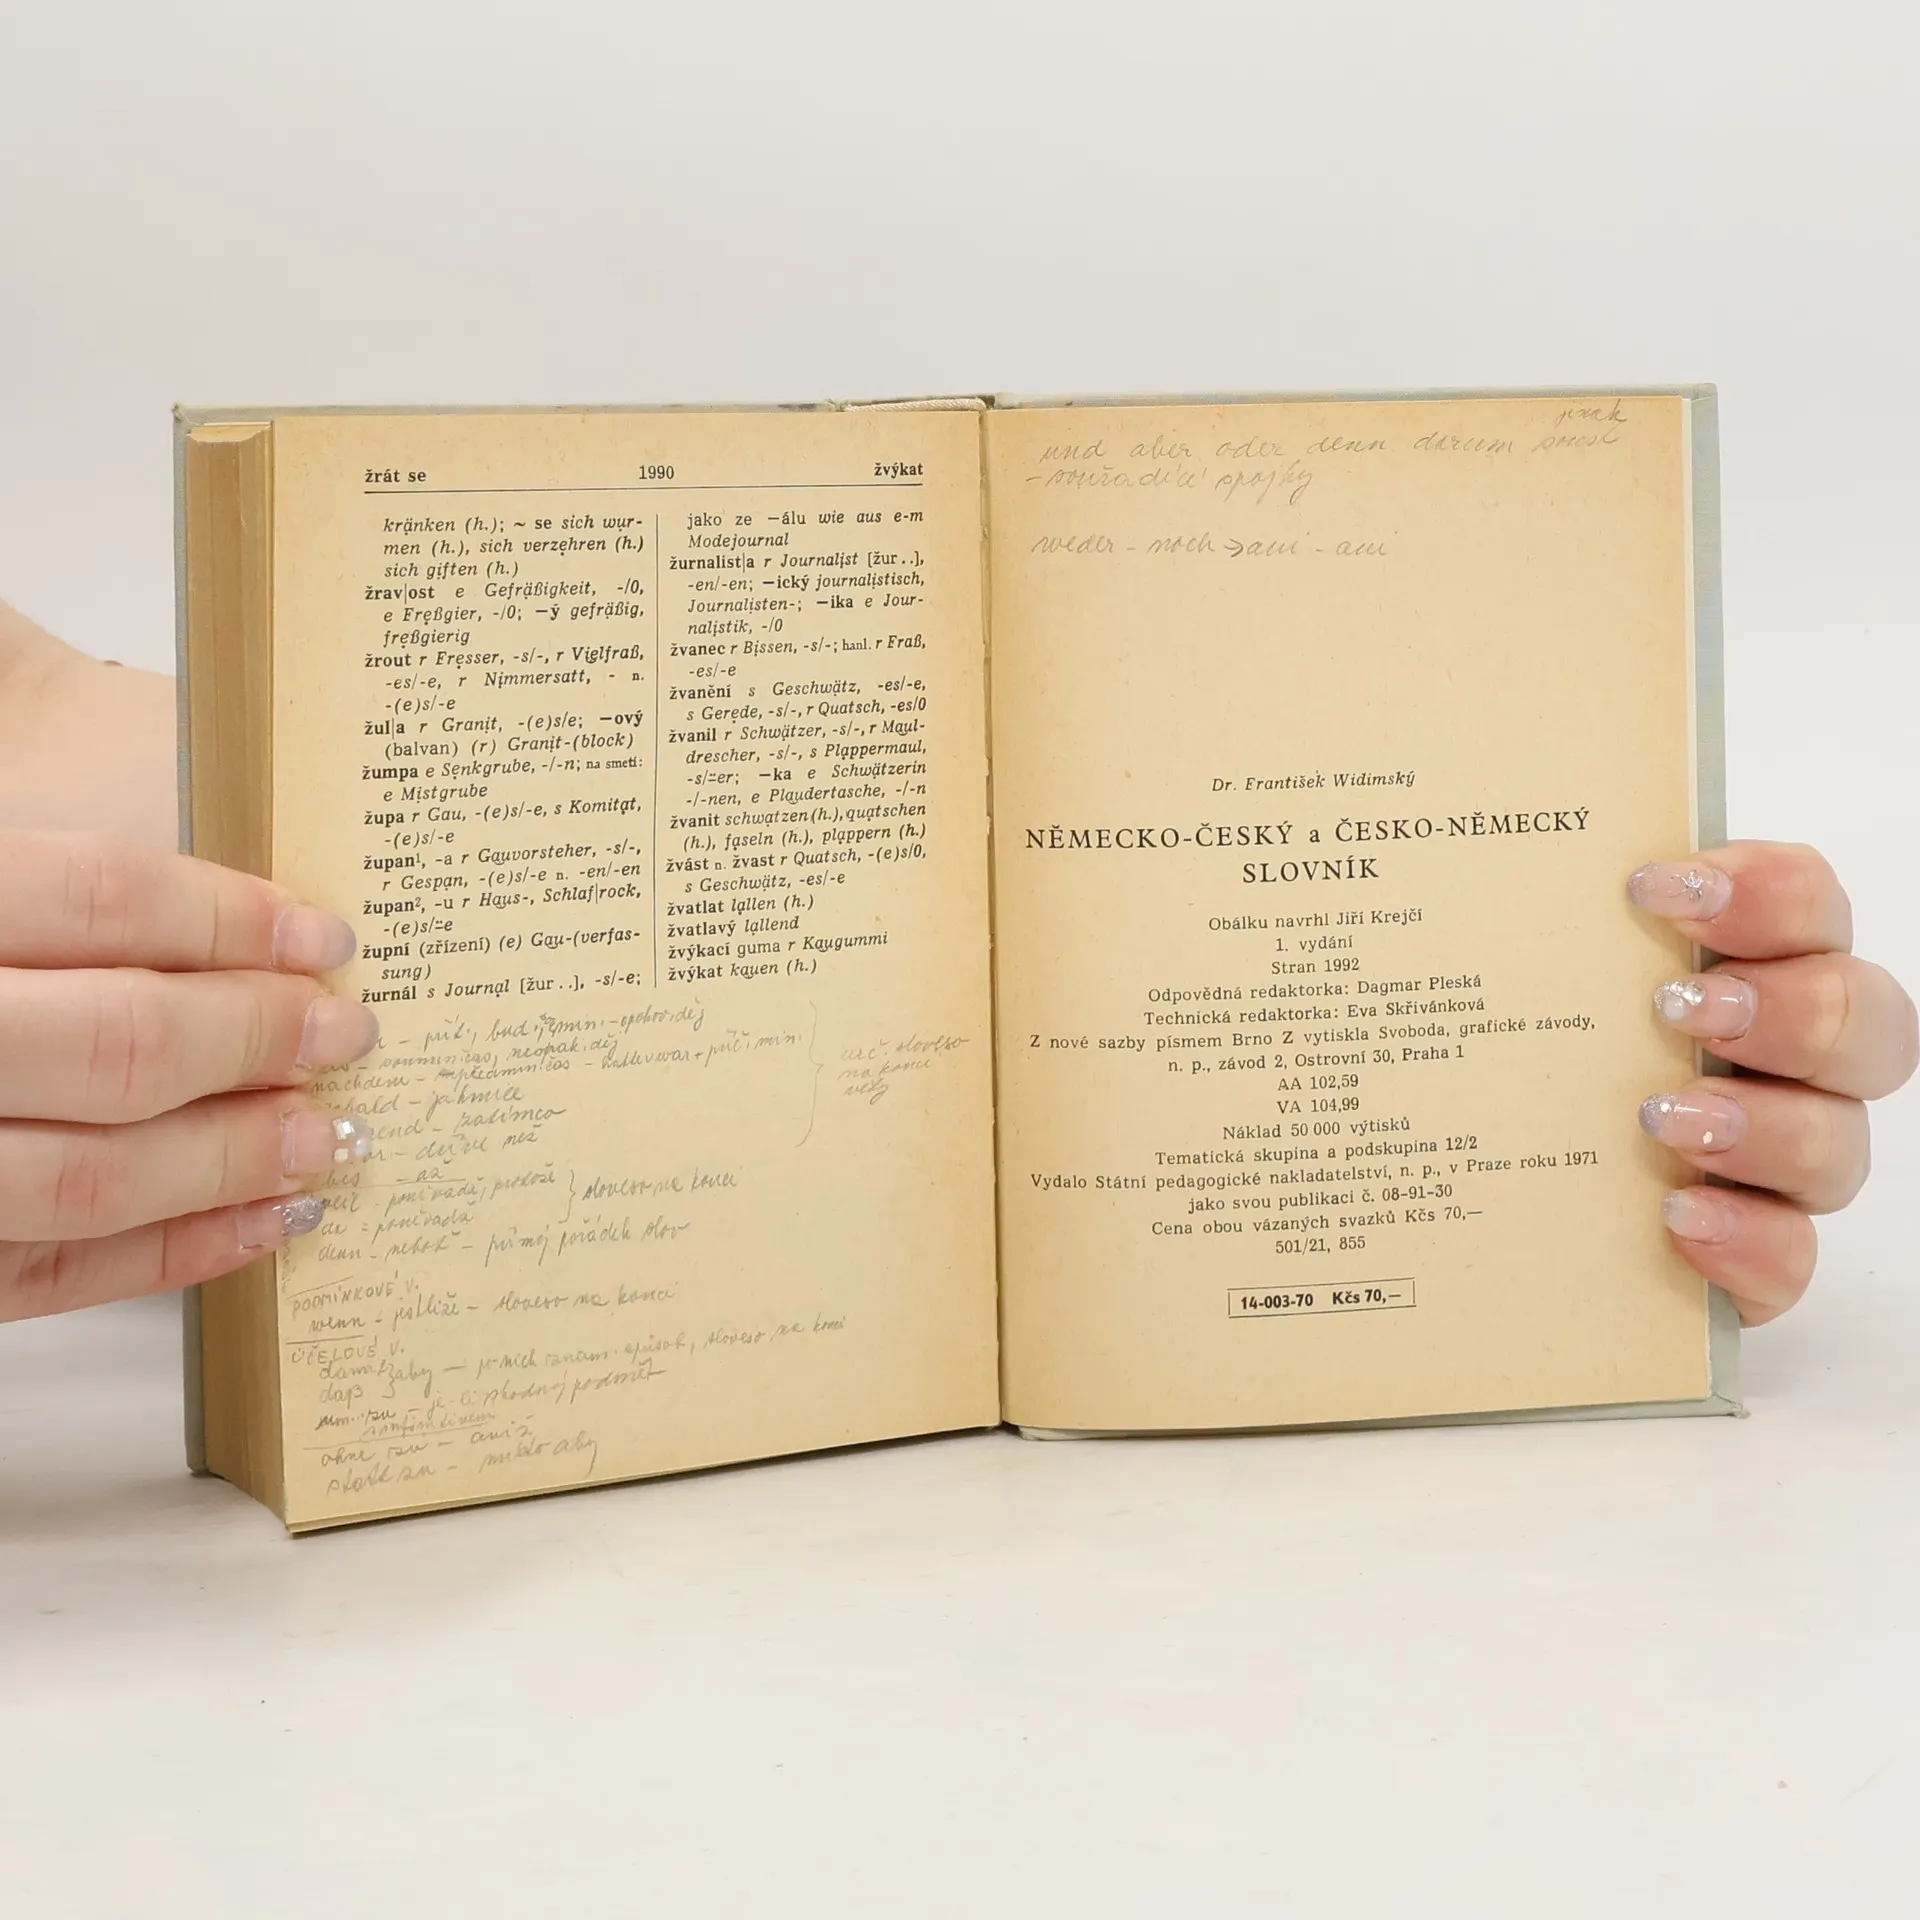 žrát se 1990 žvýkat
kränken (h.); ~ se sich wur-
men (h.), sich verzehren (h.)
sich giften (h.)
žrav|ost e Gefräßigkeit, -/0,
e Freßgier, -/0; —ý gefräßig,
freßgierig
žrout r Fresser, -s/-, r Vielfraß,
-es/-e, r Nimmersatt, - n.
-(e)s/-e
žul|a r Granit, -(e)s/e; —ový
(balvan) (r) Granit-(block)
žumpa e Senkgrube, -/-n; na smetí:
e Mistgrube
župa r Gau, -(e)s/-e, s Komitat,
-(e)s/-e
župan¹, -a r Gauvorsteher, -s/-,
r Gespan, -(e)s/-e n. -en/-en
župan², -u r Haus-, Schlaf|rock,
-(e)s/⸚e
župní (zřízení) (e) Gau-(verfas-
sung)
žurnál s Journal [žur..], -s/-e;
jako ze —álu wie aus e-m
Modejournal
žurnalist|a r Journalist [žur..],
-en/-en; —ický journalistisch,
Journalisten-; —ika e Jour-
nalistik, -/0
žvanec r Bissen, -s/-; hanl. r Fraß,
-es/-e
žvanění s Geschwätz, -es/-e,
s Gerede, -s/-, r Quatsch, -es/0
žvanil r Schwätzer, -s/-, r Maul-
drescher, -s/-, s Plappermaul,
-s/⸚er; —ka e Schwätzerin
-/-nen, e Plaudertasche, -/-n
žvanit schwatzen (h.), quatschen
(h.), faseln (h.), plappern (h.)
žvást n. žvast r Quatsch, -(e)s/0,
s Geschwätz, -es/-e
žvatlat lallen (h.)
žvatlavý lallend
žvýkací guma r Kaugummi
žvýkat kauen (h.)
– přít., bud. min. – opakov. děj
neopak. děj
nachdem – předmin. čas – + příč. min.
– jakmile
– zatímco
– dříve než
bis – až
– poněvadž, protože } sloveso na konci
da = poněvadž
denn – neboť – přímý pořádek slov
urč. sloveso
na konci
věty
PODMÍNKOVÉ V.
wenn – jestliže – sloveso na konci
ÚČELOVÉ V.
damit } aby – sloveso na konci
daß
um..zu – je-li shodný podmět
s infinitivem
ohne zu – aniž
statt zu – místo aby
jinak
und aber oder denn darum sonst
– souřadící spojky
weder – noch → ani – ani
Dr. František Widimský
NĚMECKO-ČESKÝ a ČESKO-NĚMECKÝ
SLOVNÍK
Obálku navrhl Jiří Krejčí
1. vydání
Stran 1992
Odpovědná redaktorka: Dagmar Pleská
Technická redaktorka: Eva Skřivánková
Z nové sazby písmem Brno Z vytiskla Svoboda, grafické závody,
n. p., závod 2, Ostrovní 30, Praha 1
AA 102,59
VA 104,99
Náklad 50 000 výtisků
Tematická skupina a podskupina 12/2
Vydalo Státní pedagogické nakladatelství, n. p., v Praze roku 1971
jako svou publikaci č. 08-91-30
Cena obou vázaných svazků Kčs 70,—
501/21, 855
14-003-70 Kčs 70,—